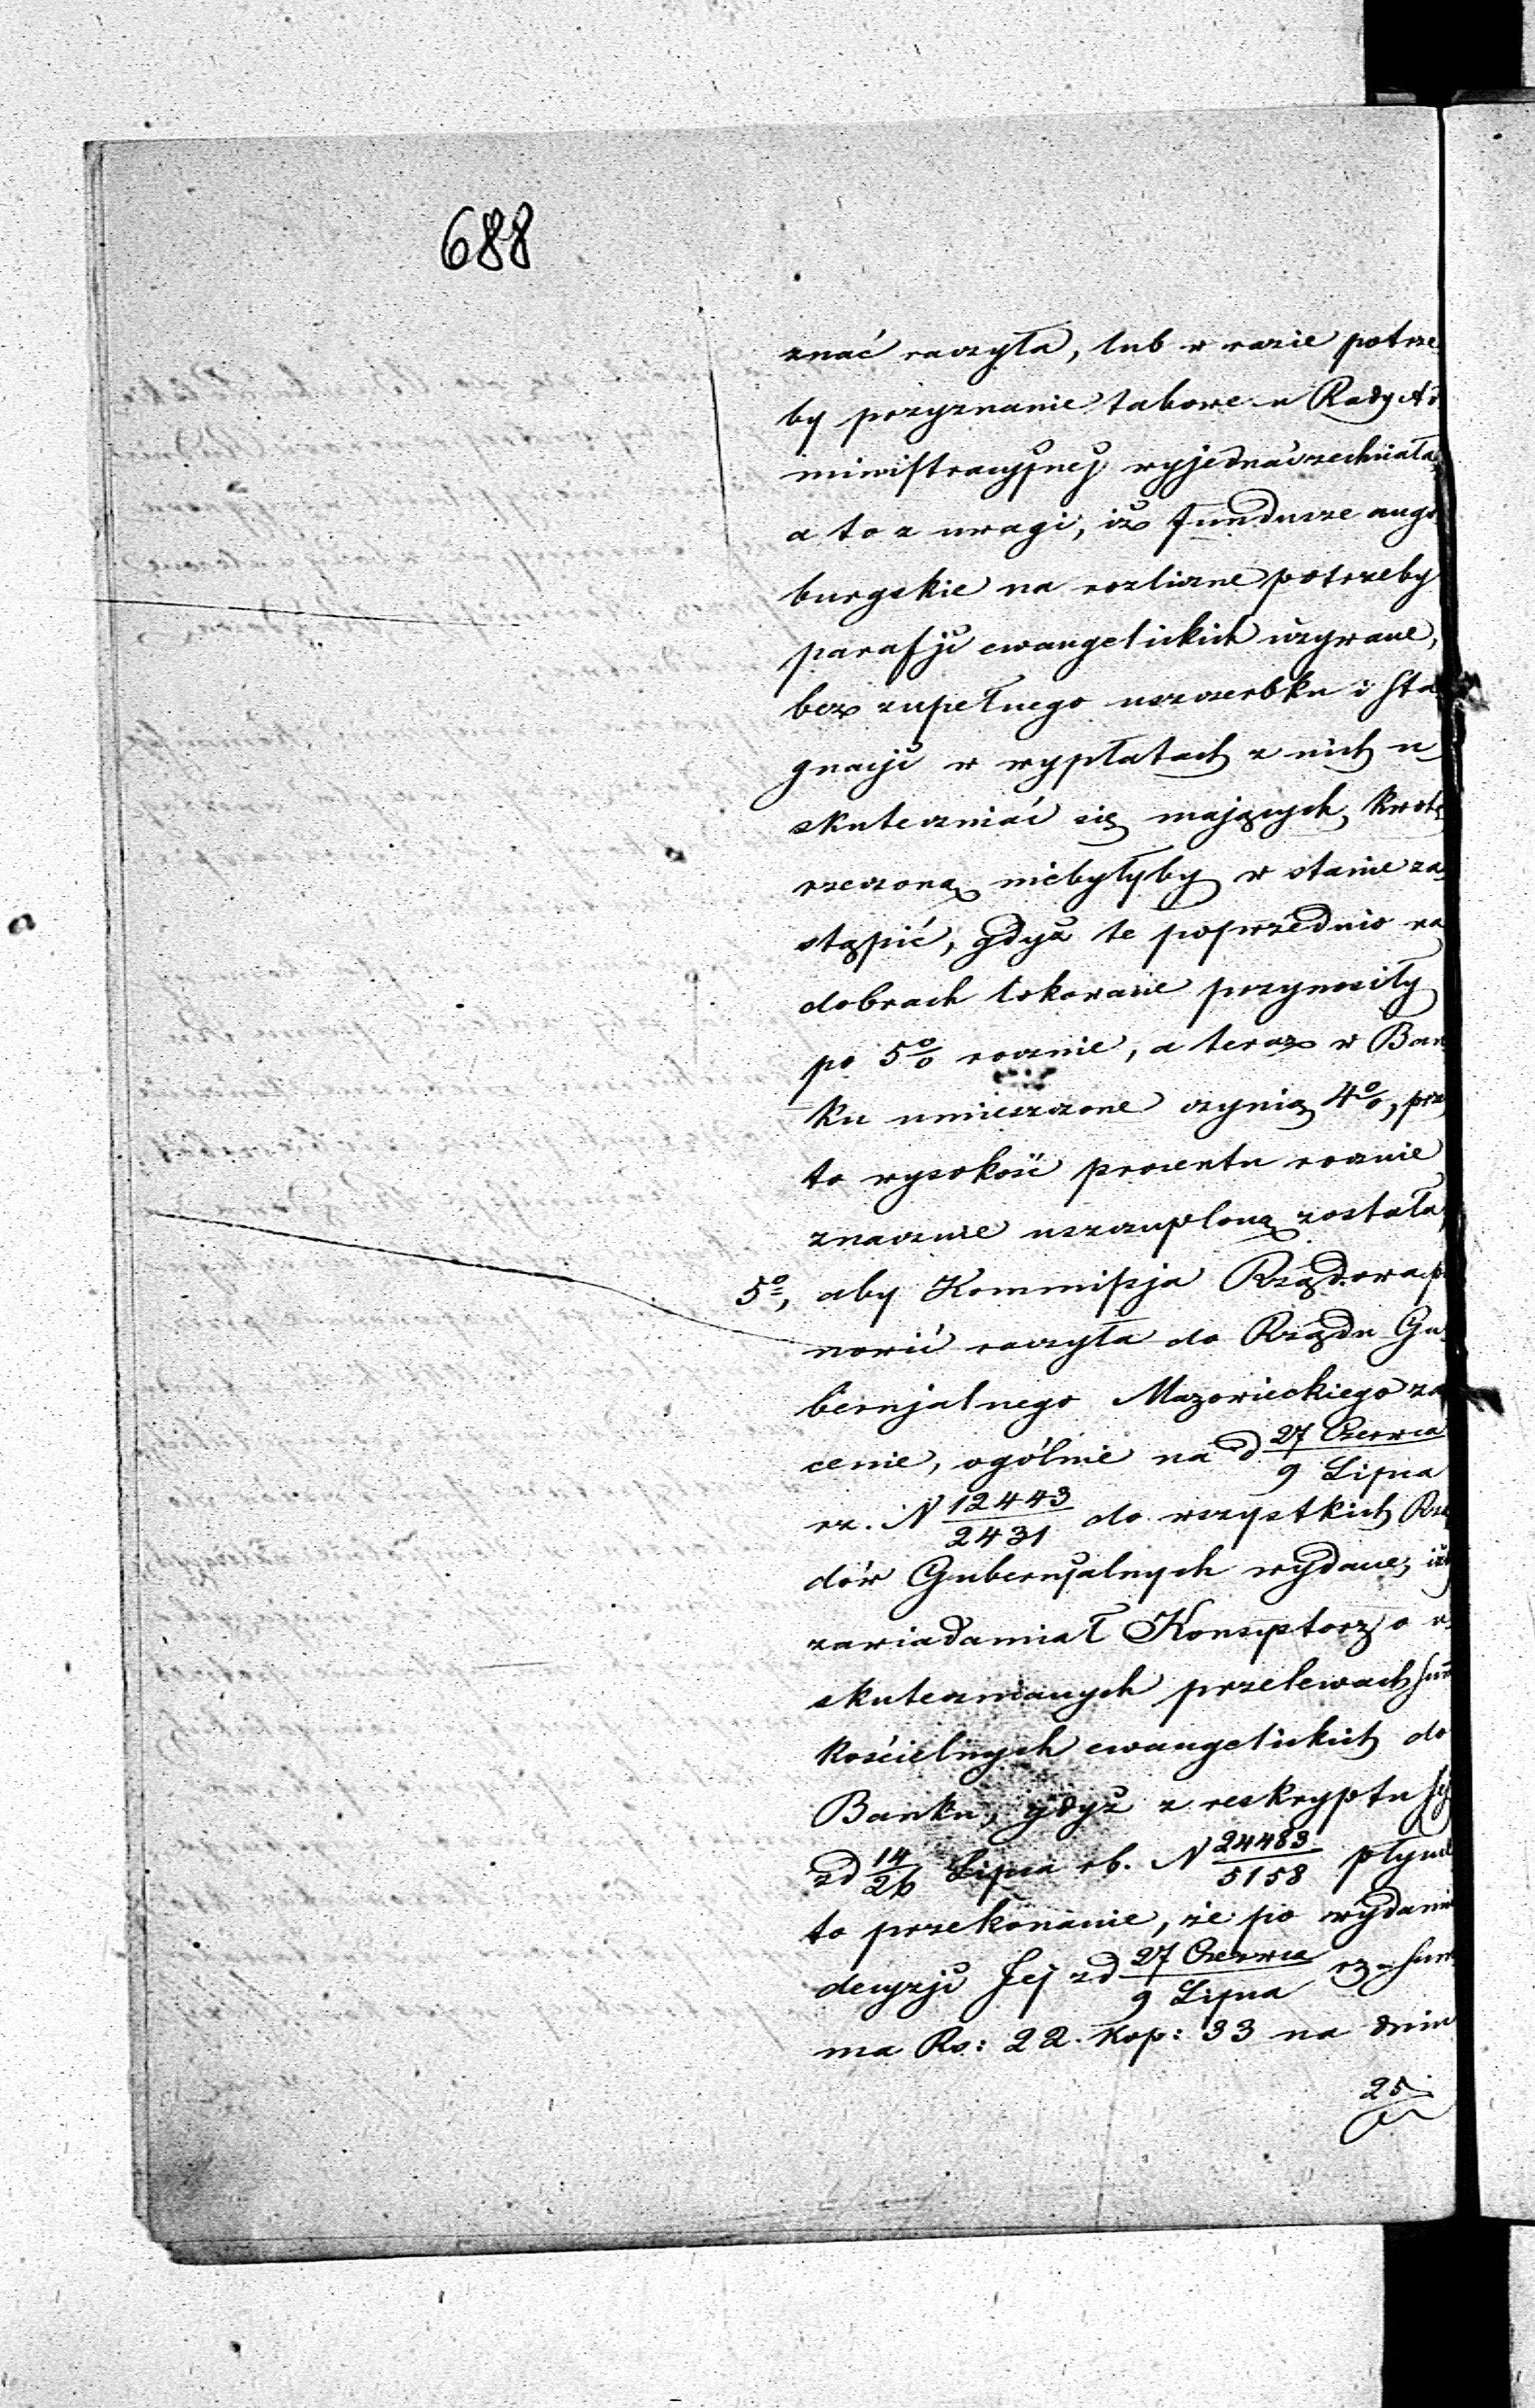 688
znać raczyła, lub w razie potrze
by przyznanie takowe u Rady Ad
ministracyjnej wyjednać zechciała
a to z uwagi, iż fundusze augs
burgskie na rozliczne potrzeby
parafji ewangelickich używane,
bez zupełnego uszczerbku i sta
gnacji w wypłatach z nich u
skuteczniać się mających, kwotę
rzeczoną niebyłyby w stanie za
stąpić, gdyż te poprzednio na
dobrach lokowane przynosiły
po 5% rocznie, a teraz w Ban
ku umieszczone czynią 4%, prze
to wysokość procentu rocznie
znacznie uszczuploną została
5o, aby Kommissja Rządowa po
nowić raczyła do Rządu Gu
bernjalnego Mazowieckiego za
cenie, ogólnie na d 27 Czerwca / 9 Lipca
rz. N 12443/2431 do wszystkich Rzą
dów Gubernjalnych wydane, iżby
zawiadamiał Konsystorz o u
skutecznianych przelewach sum
kościelnych ewangelickich do
Banku, gdyż z reskryptu Jej
z d 14/26 Lipca rb. N 24483/5158 płynie
to przekonanie, że po wydaniu
decyzji Jej z d 27 Czerwca / 9 Lipca rz. sum
ma Rs: 22. kop: 33 na dniu
25